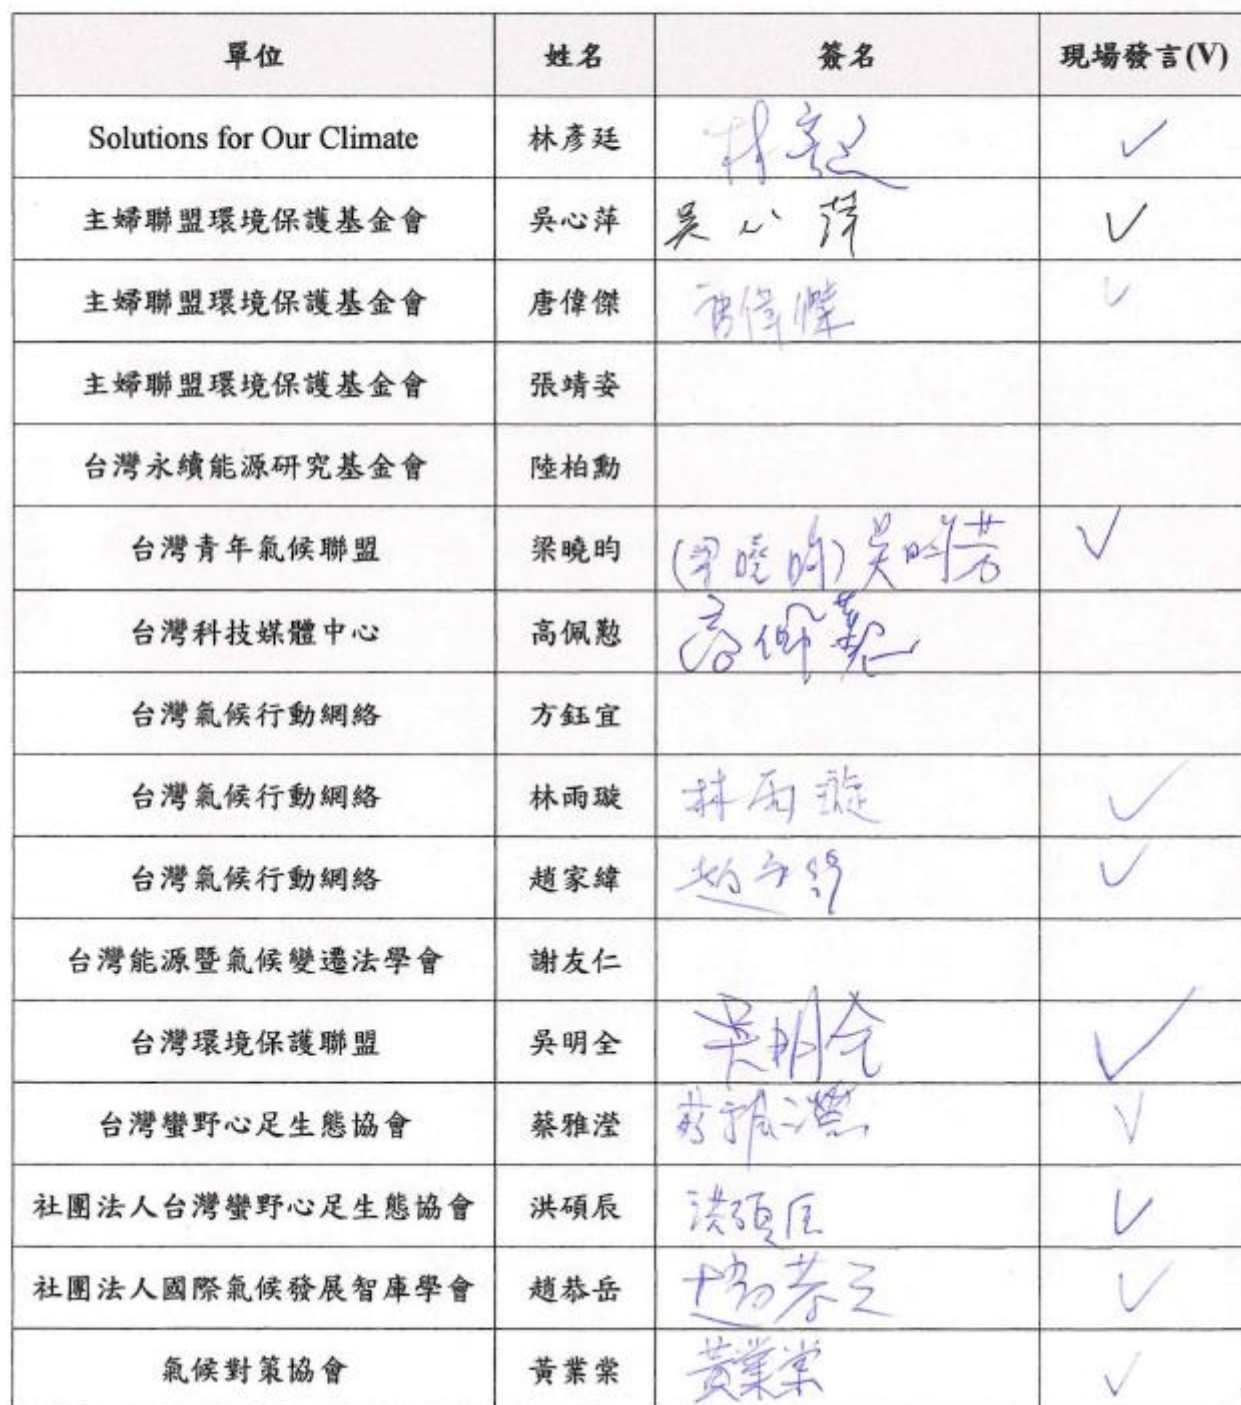 單位 姓名 簽名 現場發言(V)
Solutions for Our Climate 林彥廷 ✓
主婦聯盟環境保護基金會 吳心萍 吳心萍 ✓
主婦聯盟環境保護基金會 唐偉傑 唐偉傑 ✓
主婦聯盟環境保護基金會 張靖姿
台灣永續能源研究基金會 陸柏勳
台灣青年氣候聯盟 梁曉昀 (梁曉昀) ✓
台灣科技媒體中心 高佩懃 高佩懃
台灣氣候行動網絡 方鈺宜
台灣氣候行動網絡 林雨璇 林雨璇 ✓
台灣氣候行動網絡 趙家緯 趙家緯 ✓
台灣能源暨氣候變遷法學會 謝友仁
台灣環境保護聯盟 吳明全 吳明全 ✓
台灣蠻野心足生態協會 蔡雅瀅 蔡雅瀅 ✓
社團法人台灣蠻野心足生態協會 洪碩辰 洪碩辰 ✓
社團法人國際氣候發展智庫學會 趙恭岳 趙恭岳 ✓
氣候對策協會 黃業棠 黃業棠 ✓